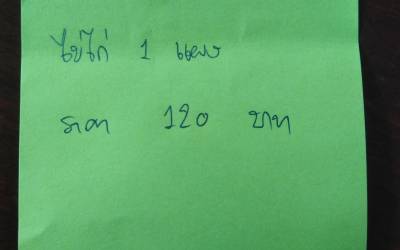 ไข่ไก่ 1 แผง
ราคา 120 บาท